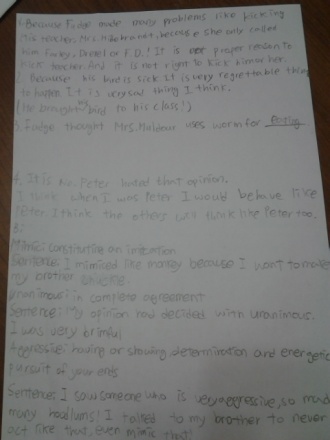 1. Because Fudge made many problems like kicking
his teacher. Mrs. Hildebrandt, because she only called
him Farley, Drexel or F.D.! It is not proper reason to
kick teacher. And it is not right to kick him or her.
Because his bird is sick. It is very regrettable thing
to happen. It is very sad thing I think.
(He brought his bird to his class!)
3. Fudge thought Mrs. Muldour uses worm for eating.
4. It is Mr. Peter hated that opinion.
I think, when I was Peter I would behave like
Peter. I think the others will think like Peter too.
B:
Mimic: constituting an imitation
Sentence: I mimiced like monkey because I want to make
my brother
unanimous: in complete agreement
Sentence: My opinion had decided with unanimous.
I was very brimful
Aggressive: having or showing determination and energetic
pursuit of your ends
Sentence: I saw someone who is very aggressive, so much
many hoodlums! I talked to my brother to never
act like that, even mimic that!